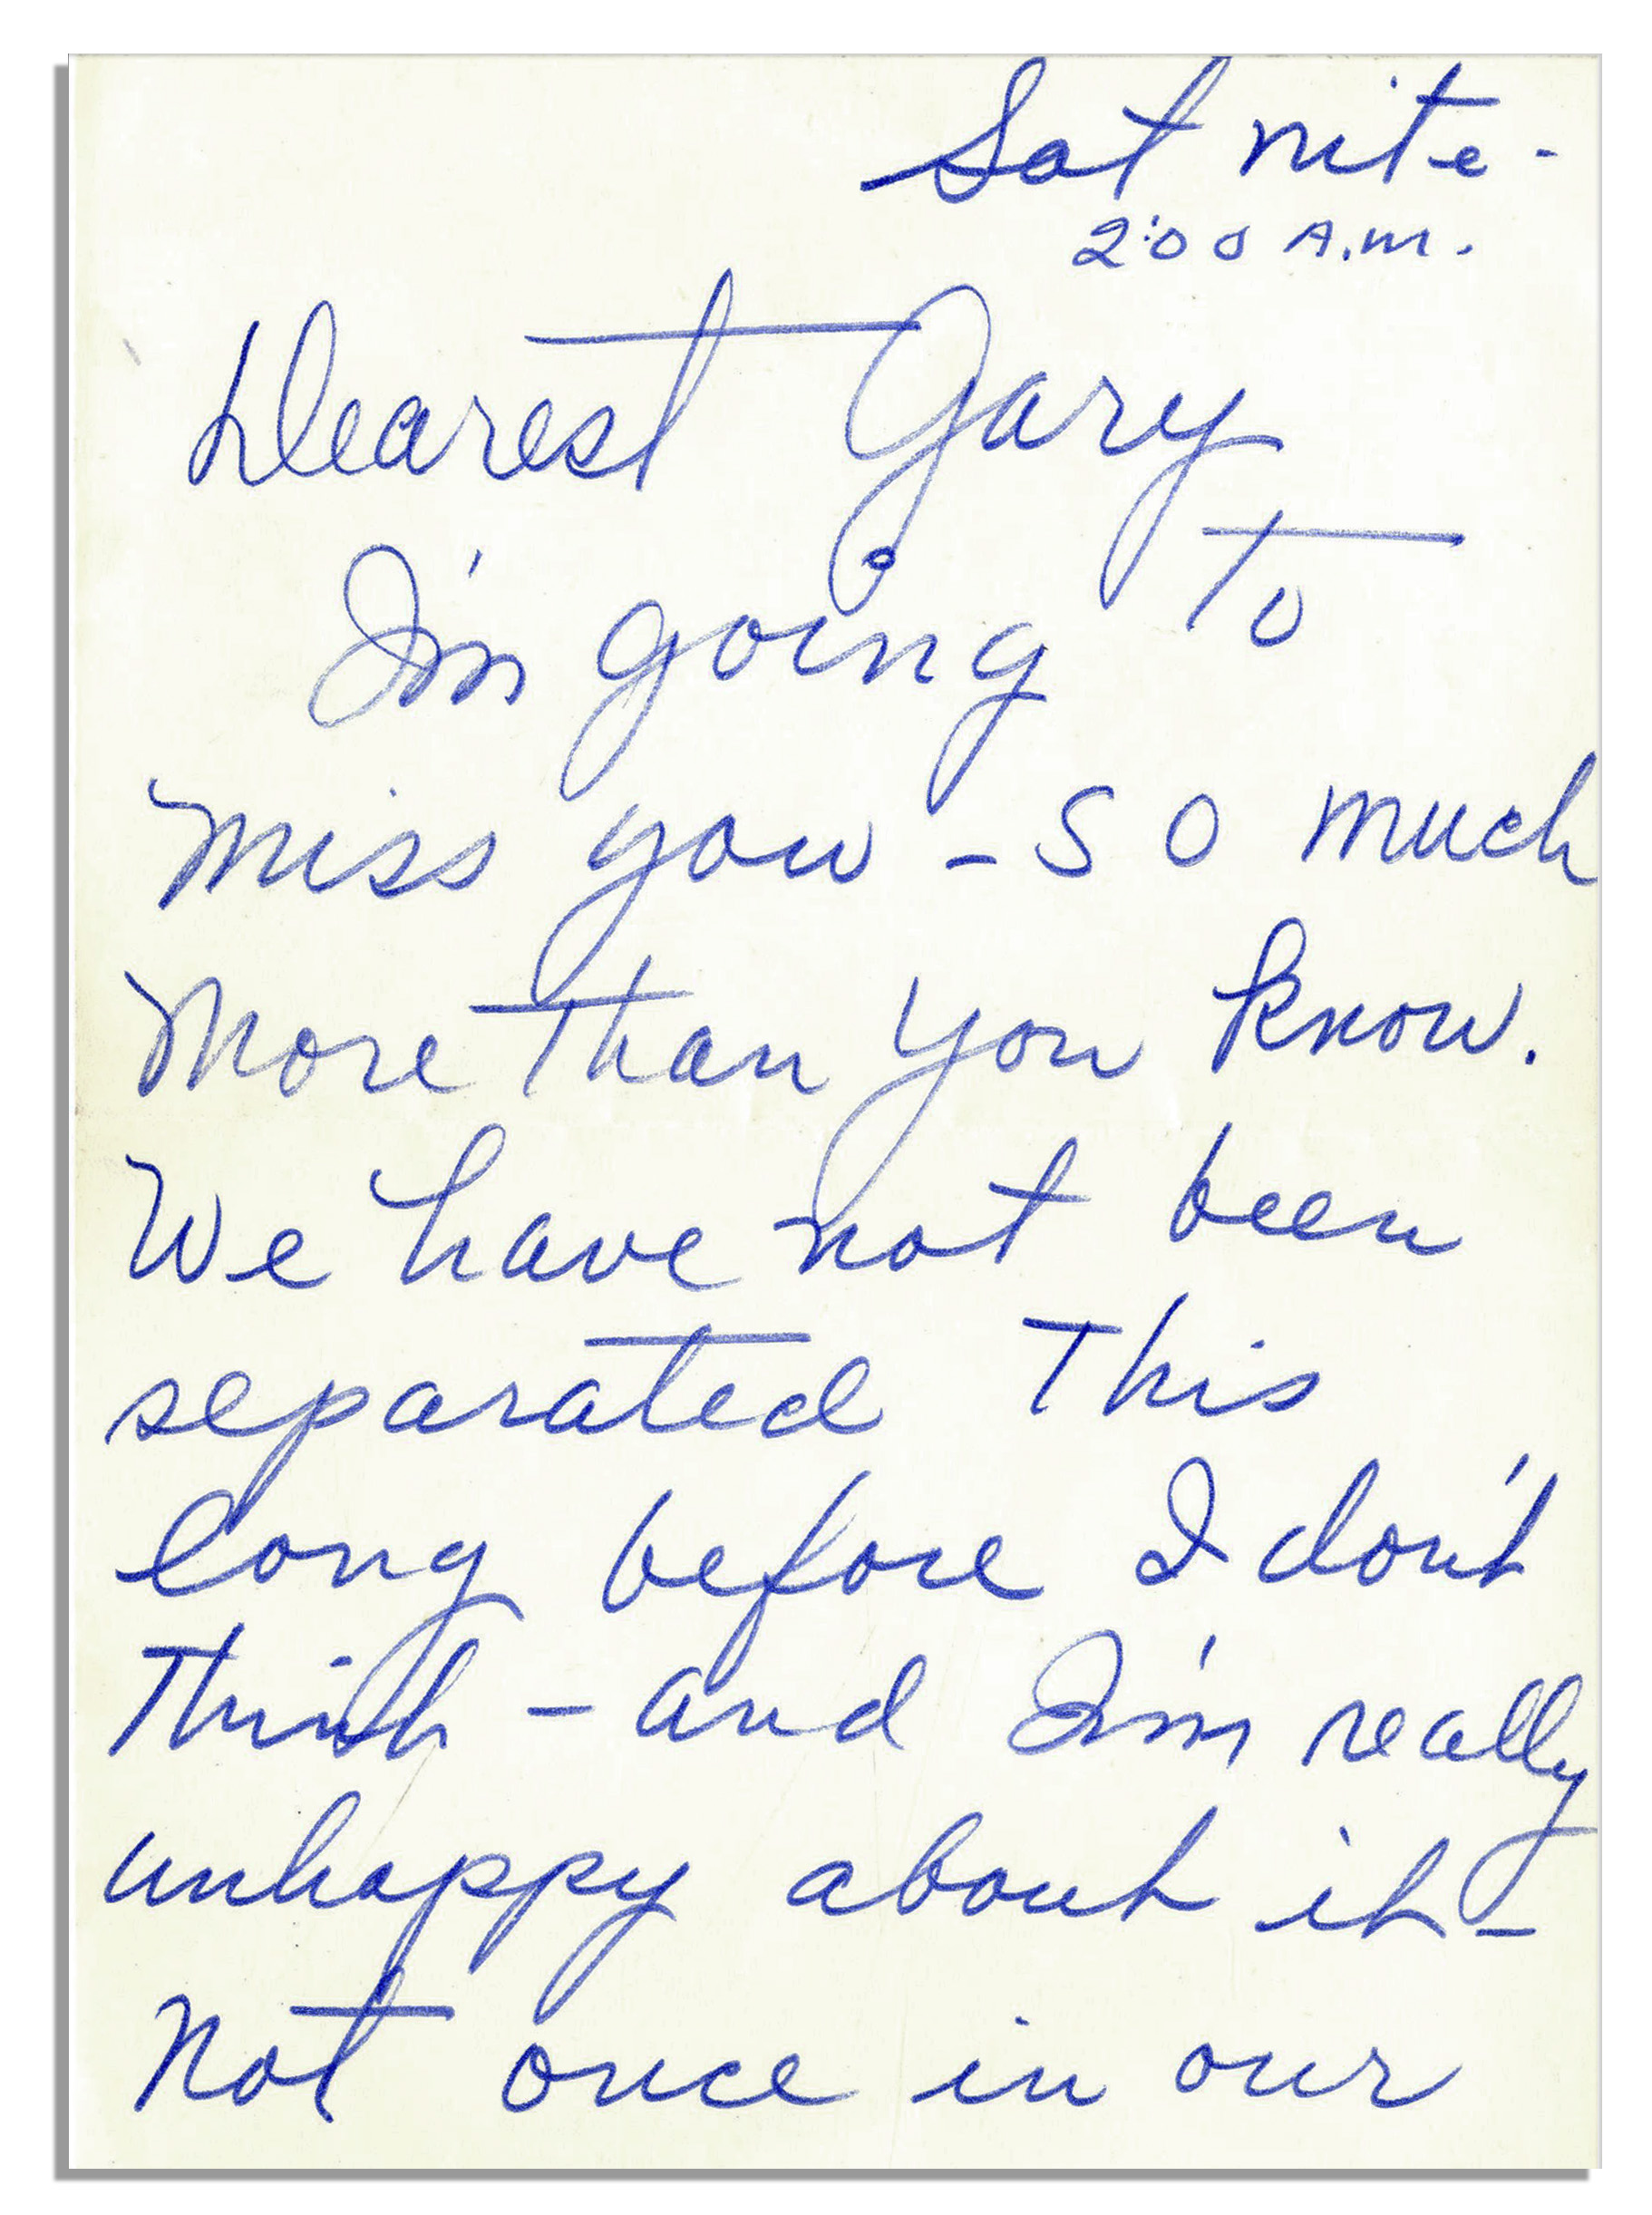 Sat nite -
2:00 A.M.
Dearest Gary
I'm going to
miss you - so much
more than you know.
We have not been
separated this
long before I don't
think - and I'm really
unhappy about it -
Not once in our